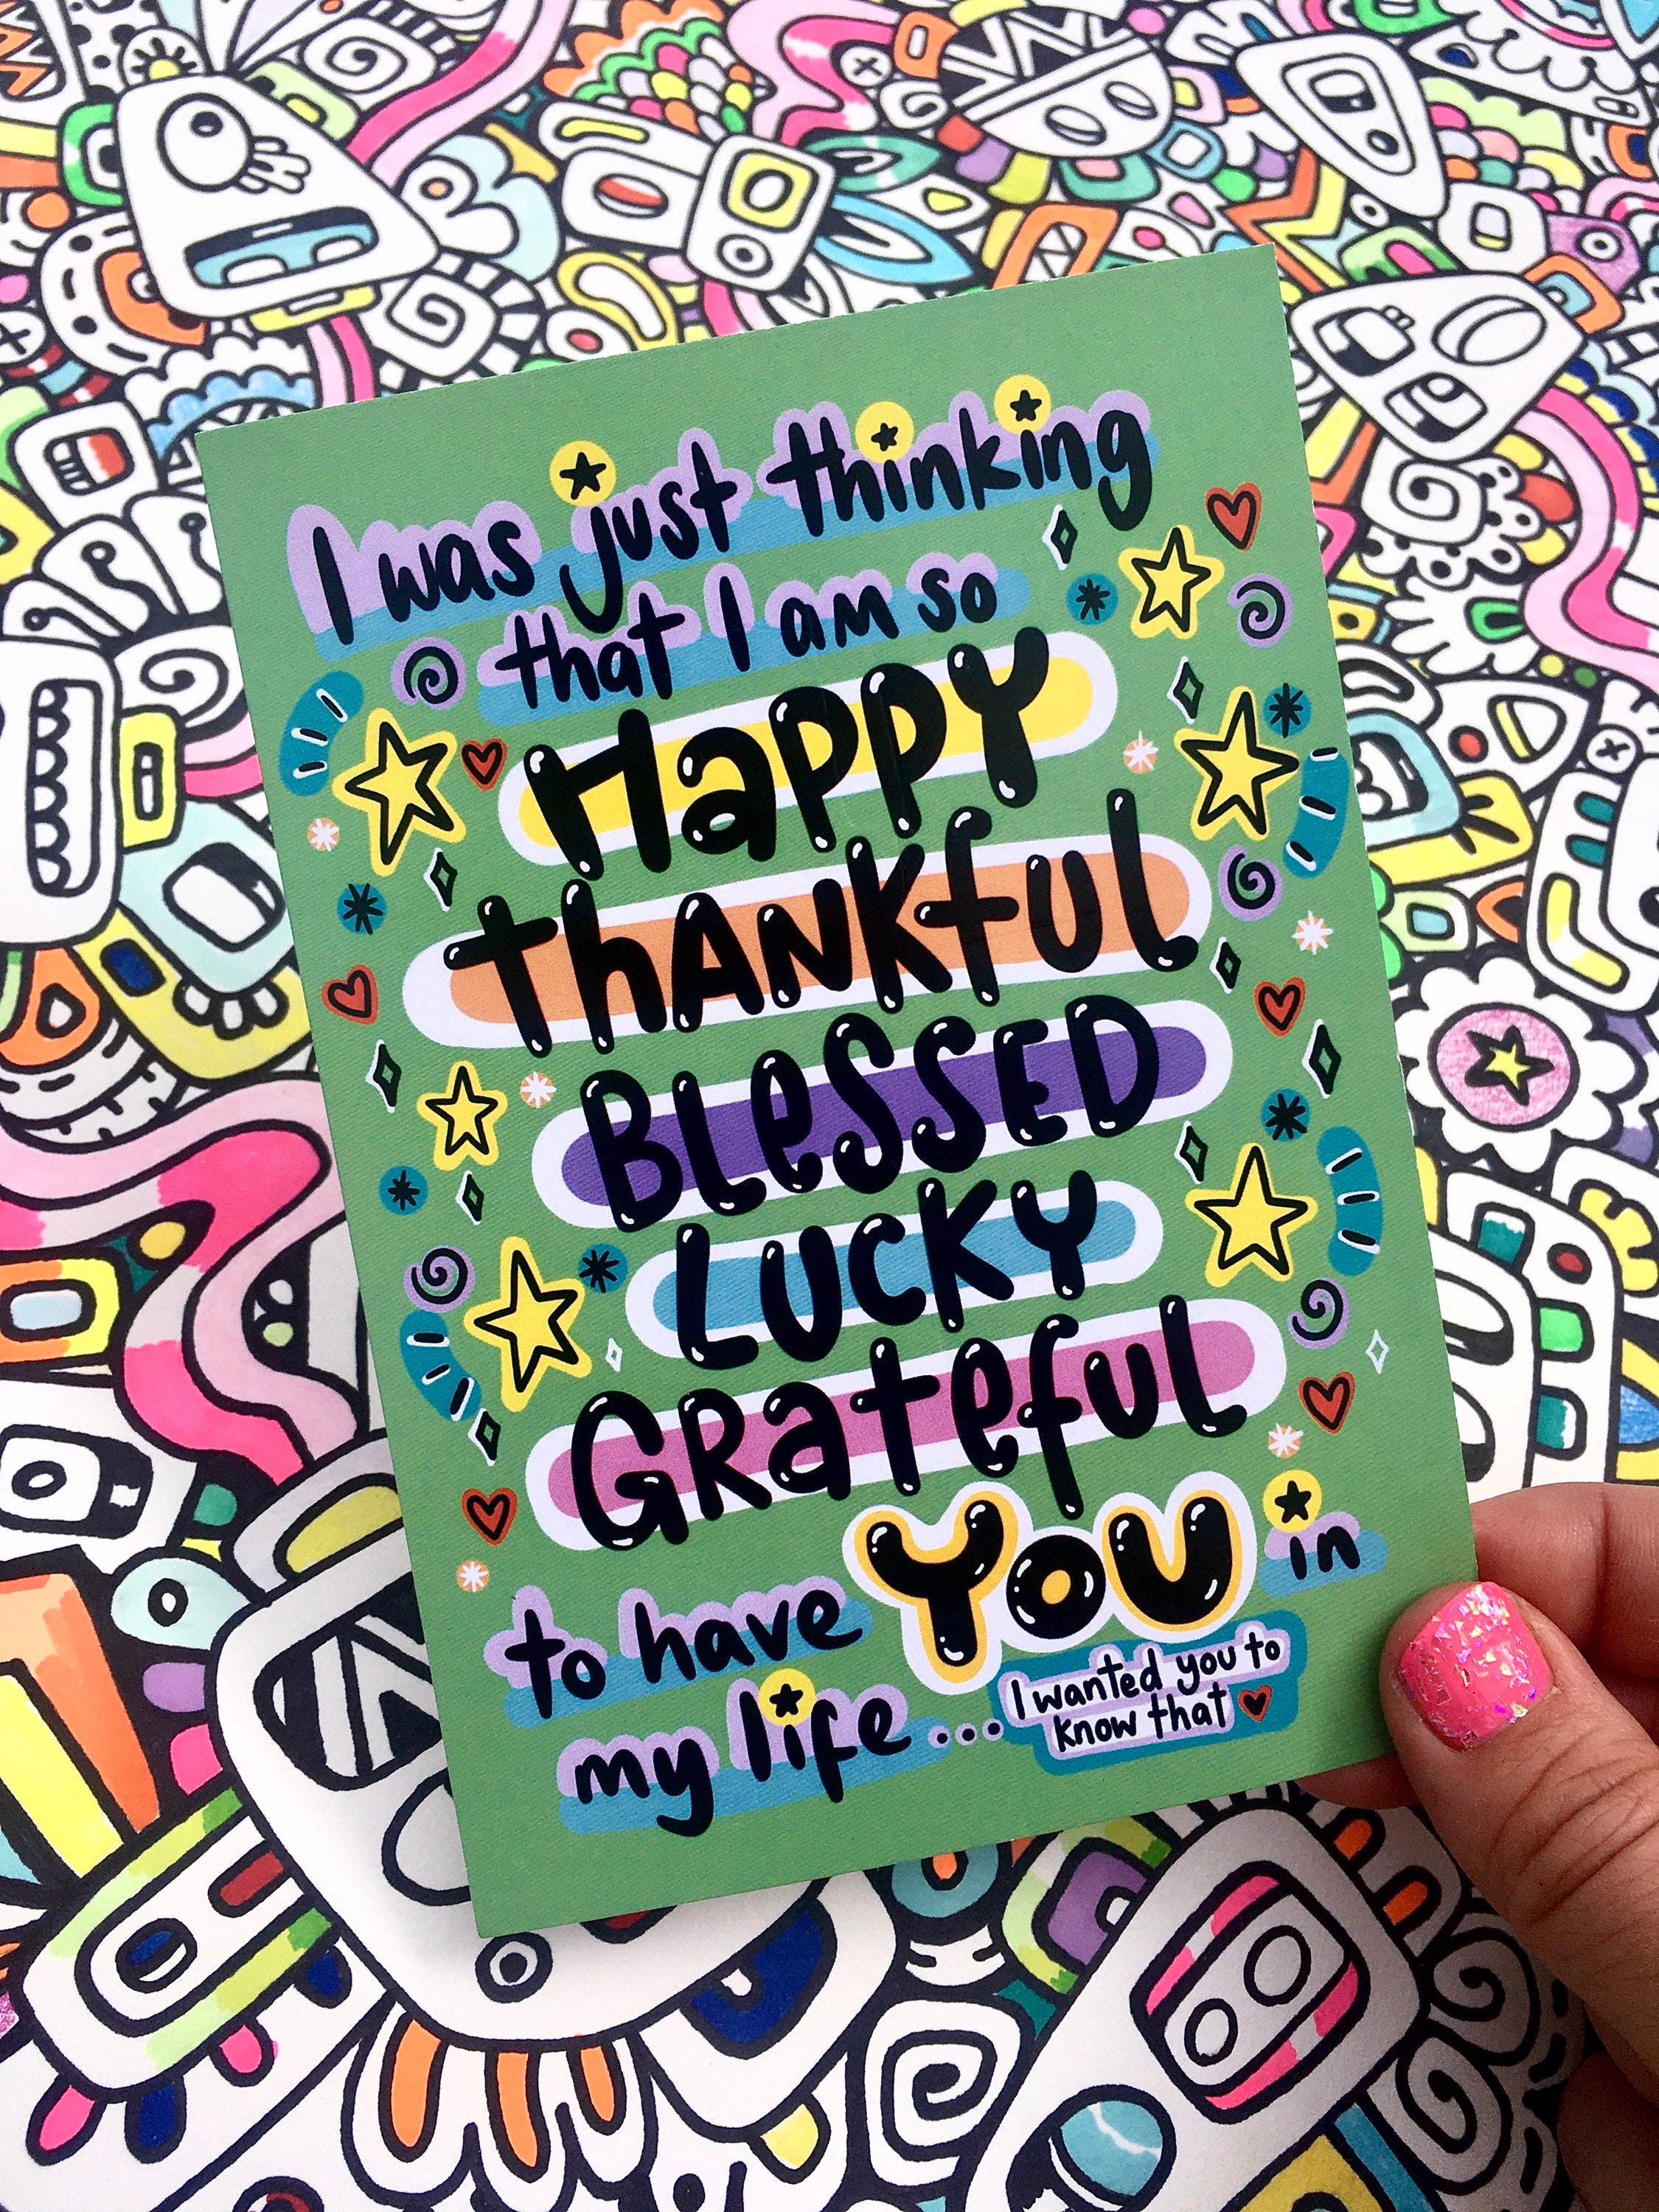 I was just thinking
that I am so
HaPPY
ThANKfUL
BLeSSED
LUCKY
GRateful
to have YoU in
my life...
I wanted you to
know that